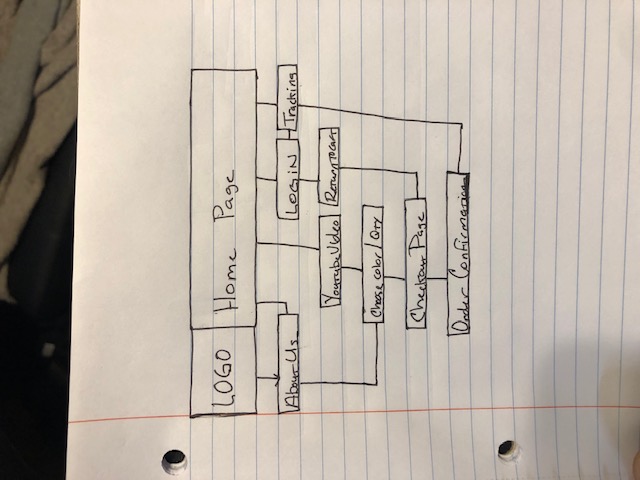 LOGO Home Page
About Us
LOGIN Tracking
Youtube Video Return To Cart
Choose color/Qty
Checkout Page
Order Confirmation